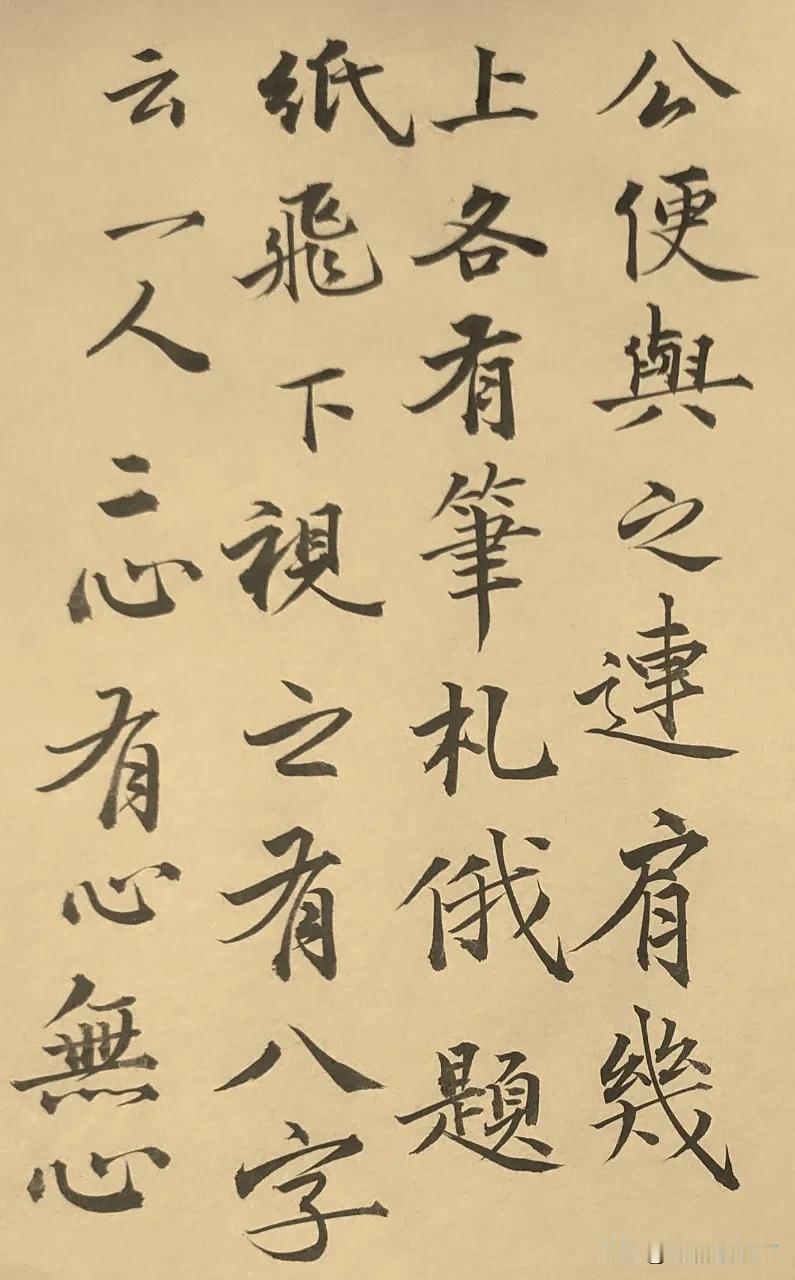 公便與之連肩幾
上各有筆札俄題
紙飛下視之有八字
云一人二心有心無心